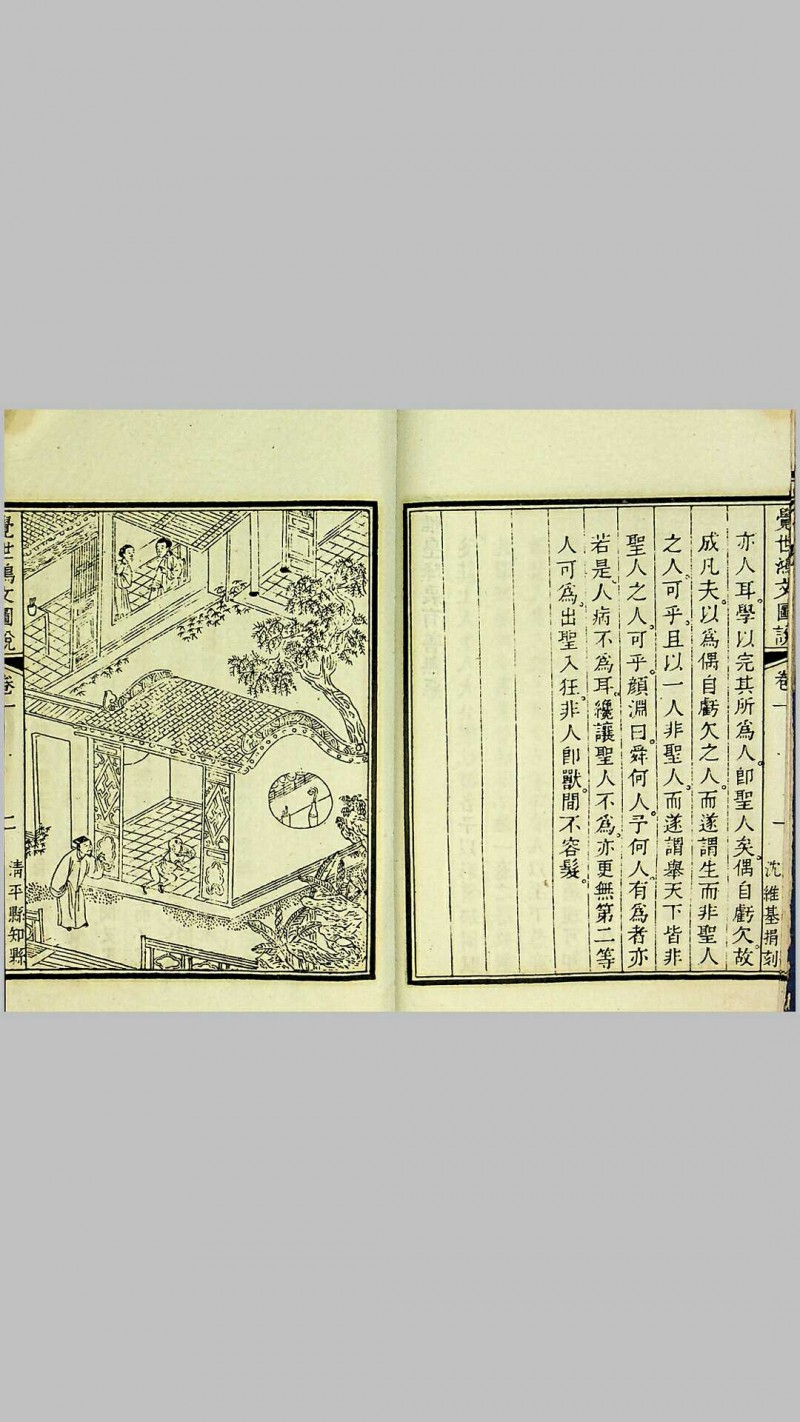 覺世鴻文圖說 卷一 一 沈維基捐刻
亦人耳。學以完其所爲人。卽聖人矣。偶自虧欠。故
成凡夫。以爲偶自虧欠之人。而遂謂生而非聖人
之人。可乎。且以一人非聖人。而遂謂舉天下皆非
聖人之人。可乎。顏淵曰。舜何人。予何人。有爲者亦
若是。人病不爲耳。纔讓聖人不爲。亦更無第二等
人可爲。出聖入狂。非人卽獸。間不容髮。
覺世鴻文圖說 卷一 二 清平縣知縣